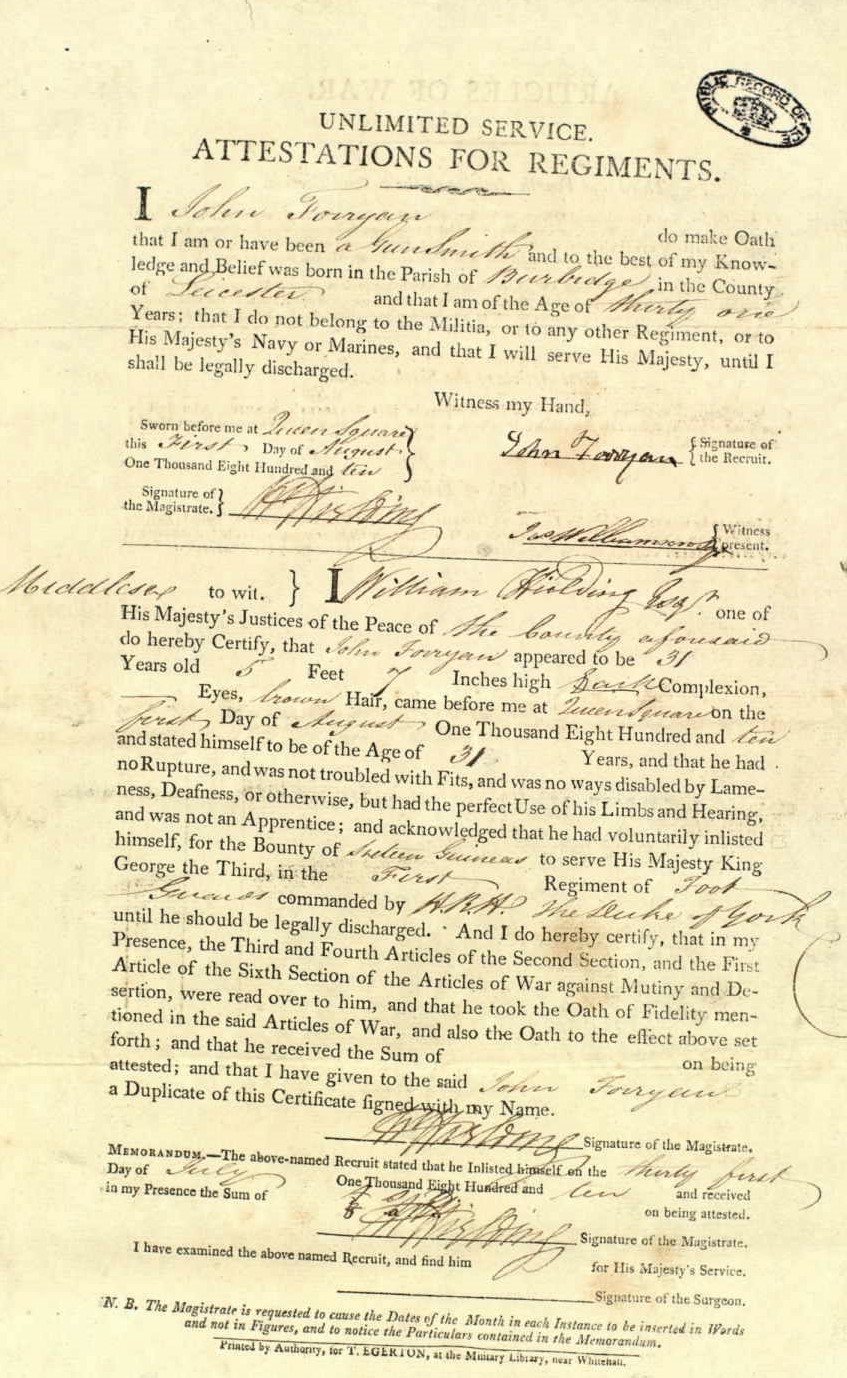 PUBLIC RECORD OFFICE
UNLIMITED SERVICE.
ATTESTATIONS FOR REGIMENTS.
I John Torryan do make Oath
that I am or have been a Gun Smith and to the best of my Know-
ledge and Belief was born in the Parish of Burbidge in the County
of Leicester and that I am of the Age of thirty one
Years; that I do not belong to the Militia, or to any other Regiment, or to
His Majesty's Navy or Marines, and that I will serve His Majesty, until I
shall be legally discharged.
Witness my Hand,
Sworn before me at Queen Square
this First Day of August
One Thousand Eight Hundred and ten
John Torryan Signature of
the Recruit.
Signature of
the Magistrate. Wm Fielding
Jas Williamson Witness
present.
Middlesex to wit. } I William Fielding Esqr. one of
His Majesty's Justices of the Peace of the County aforesaid
do hereby Certify, that John Torryan appeared to be 31
Years old 5 Feet 7 Inches high Dark Complexion,
Eyes, brown Hair, came before me at Queen Square on the
first Day of August One Thousand Eight Hundred and ten
and stated himself to be of the Age of 31 Years, and that he had
no Rupture, and was not troubled with Fits, and was no ways disabled by Lame-
ness, Deafness, or otherwise, but had the perfect Use of his Limbs and Hearing,
and was not an Apprentice; and acknowledged that he had voluntarily inlisted
himself, for the Bounty of Sixteen Guineas to serve His Majesty King
George the Third, in the First Regiment of Foot
Guards commanded by H.R.H. The Duke of York
until he should be legally discharged. And I do hereby certify, that in my
Presence, the Third and Fourth Articles of the Second Section, and the First
Article of the Sixth Section of the Articles of War against Mutiny and De-
sertion, were read over to him, and that he took the Oath of Fidelity men-
tioned in the said Articles of War, and also the Oath to the effect above set
forth; and that he received the Sum of on being
attested; and that I have given to the said John Torryan
a Duplicate of this Certificate signed with my Name.
Wm Fielding Signature of the Magistrate.
MEMORANDUM.—The above-named Recruit stated that he Inlisted himself on the thirty first
Day of July One Thousand Eight Hundred and ten and received
in my Presence the Sum of on being attested.
Wm Fielding Signature of the Magistrate.
I have examined the above named Recruit, and find him for His Majesty's Service.
Signature of the Surgeon.
N. B. The Magistrate is requested to cause the Dates of the Month in each Instance to be inserted in Words
and not in Figures, and to notice the Particulars contained in the Memorandum.
Printed by Authority, for T. EGERTON, at the Military Library, near Whitehall.